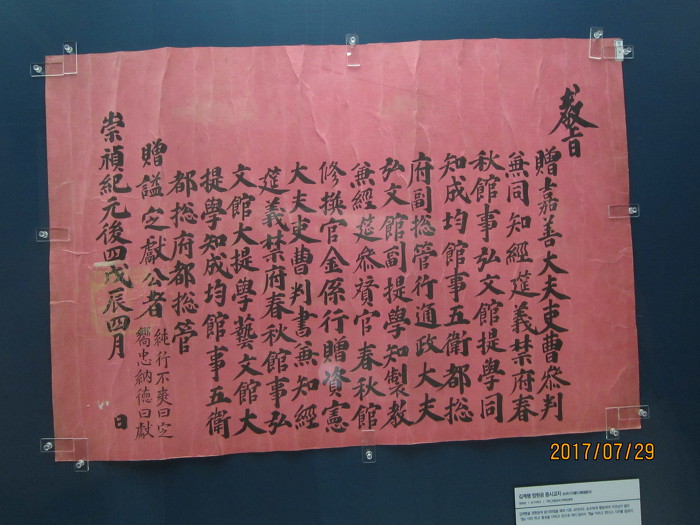 敎旨
贈嘉善大夫吏曹參判
兼同知經筵義禁府春
秋館事弘文館提學同
知成均館事五衛都摠
府副摠管行通政大夫
弘文館副提學知製敎
兼經筵參贊官春秋館
修撰官金係行贈資憲
大夫吏曹判書兼知經
筵義禁府春秋館事弘
文館大提學藝文館大
提學知成均館事五衛
都摠府都摠管
贈諡定獻公者
純行不爽曰定
嚮忠納德曰獻
崇禎紀元後四戊辰四月 日
2017/07/29